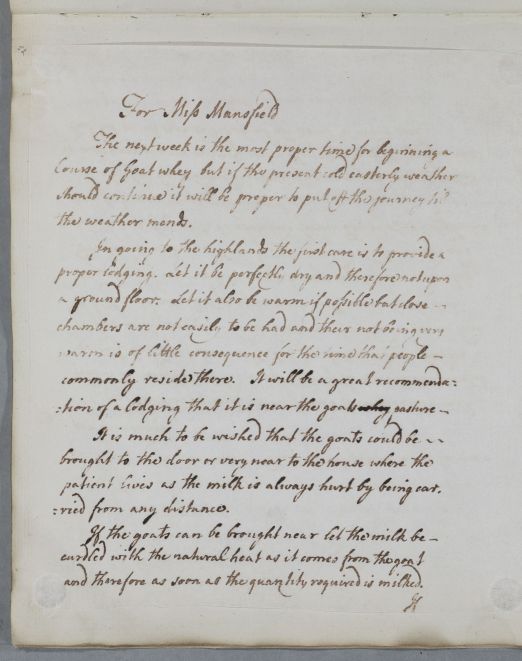 For Miss Mansfield
The next week is the most proper time for beginning a
Course of Goat whey but if the present cold easterly weather
should continue it will be proper to put off the journey till
the weather mends.
In going to the highlands the first care is to provide a
proper lodging. Let it be perfectly dry and therefore not upon
a ground floor. Let it also be warm if possible but close -
chambers are not easily to be had and their not being very
warm is of little consequence for the time that people -
commonly reside there. It will be a great recommenda=
=tion of a lodging that it is near the goats whey pasture -
It is much to be wished that the goats could be - -
brought to the door or very near to the house where the
patient lives as the milk is always hurt by being car,
=ried from any distance.
If the goats can be brought near let the milk be -
curdled with the natural heat as it comes from the goat
and therefore as soon as the quantity required is milked.
If